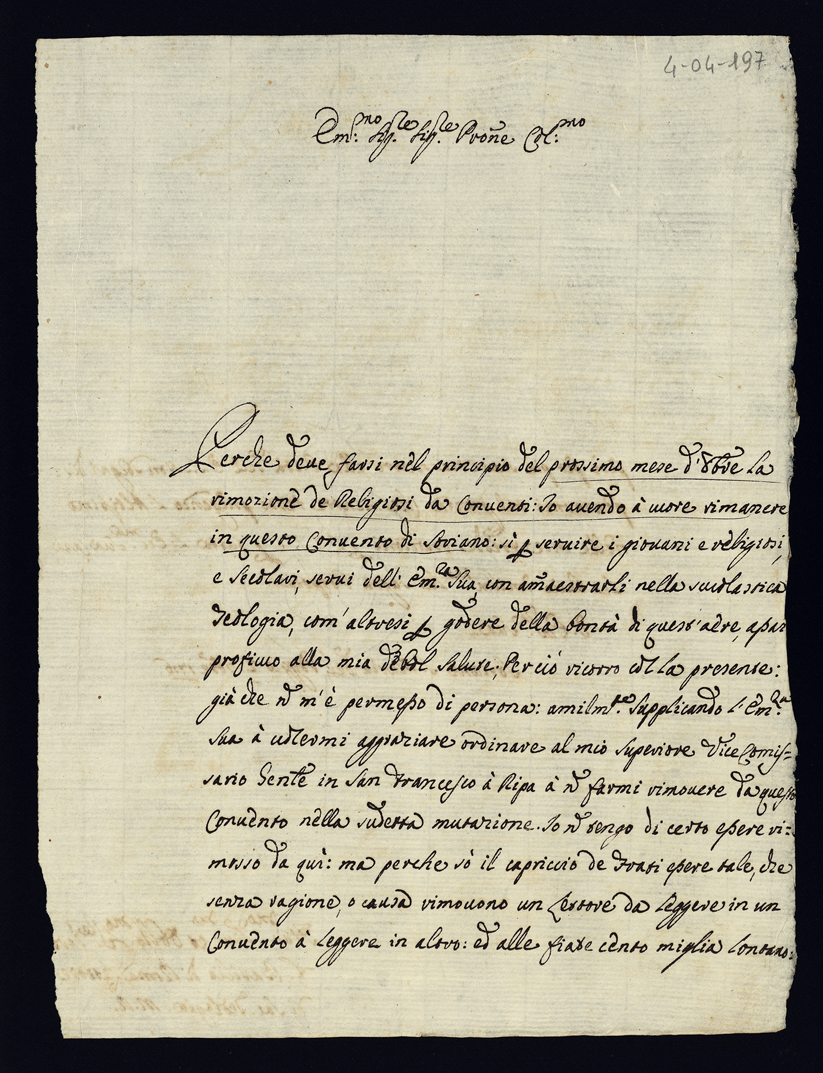 4-04-197
Em:mo Sig.re Sig.re Prone Col:mo
Perche deve farsi nel principio del prossimo mese d'8bre la
rimozione de Religiosi da Conventi: Io avendo à cuore rimanere
in questo Convento di Soviano: sì p servire i giovani e religiosi,
e secolari, servi dell' Em.za Sua, con amaestrarli nella scolastica
Teologia, com' altresi p godere della bontà di quest' aere, assai
proficuo alla mia debol salute; Perciò ricorro col la presente:
già che n m'è permesso di persona: umilm.te supplicando l' Em.za
Sua à volermi aggraziare ordinare al mio Superiore Vice Comis-
sario Genle in San Francesco à Ripa à n farmi rimovere da questo
Convento nella sudetta mutazione. Io n tengo di certo essere ri=
mosso da quì: ma perche sò il capriccio de Frati essere tale, che
senza ragione, o causa rimovono un Lettore da Leggere in un
Convento à Leggere in altro: ed alle fiate cento miglia lontano: